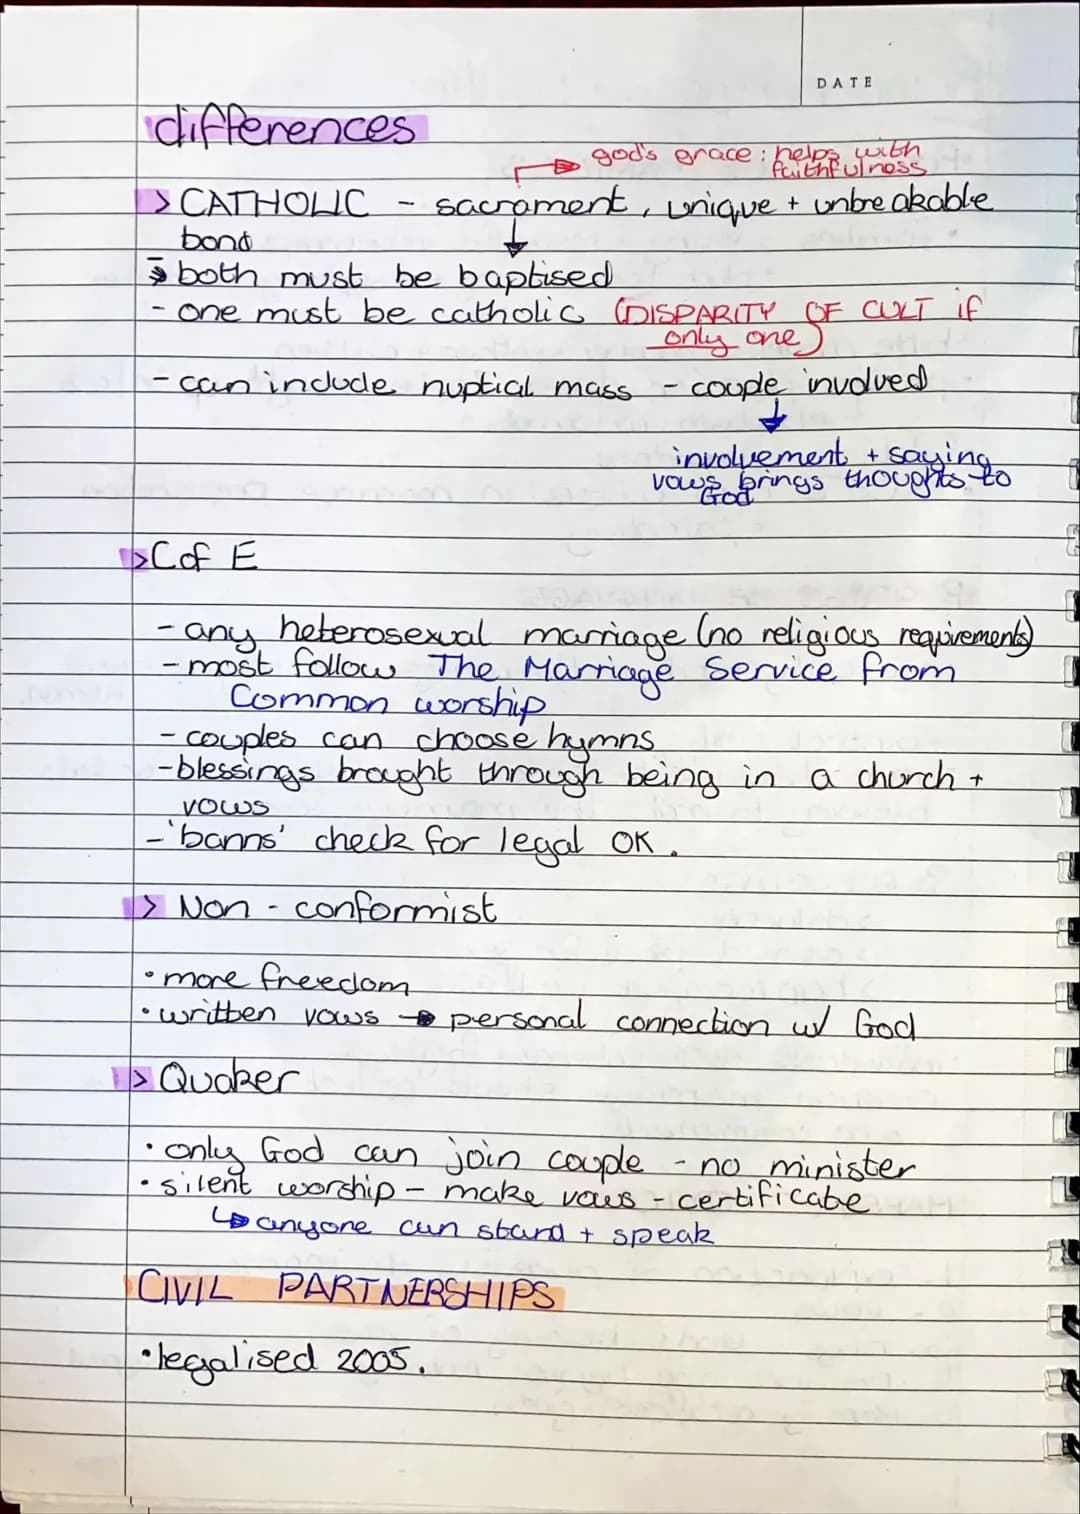 DATE
differences
god's grace : helps with
faithfulness
> CATHOLIC - sacrament, unique + unbreakable
bond
> both must be baptised
- one must be catholic (DISPARITY OF CULT if
only one)
- can include nuptial mass - couple involved
involvement + saying
vows brings thoughts to
God
> C of E
- any heterosexual marriage (no religious requirements)
- most follow The Marriage Service from
Common worship
- couples can choose hymns
- blessings brought through being in a church +
vows
- 'banns' check for legal OK.
> Non - conformist
• more freedom
• written vows → personal connection w/ God
> Quaker
• only God can join couple - no minister
• silent worship - make vows - certificate
↳ anyone can stand + speak
CIVIL PARTNERSHIPS
• legalised 2005.